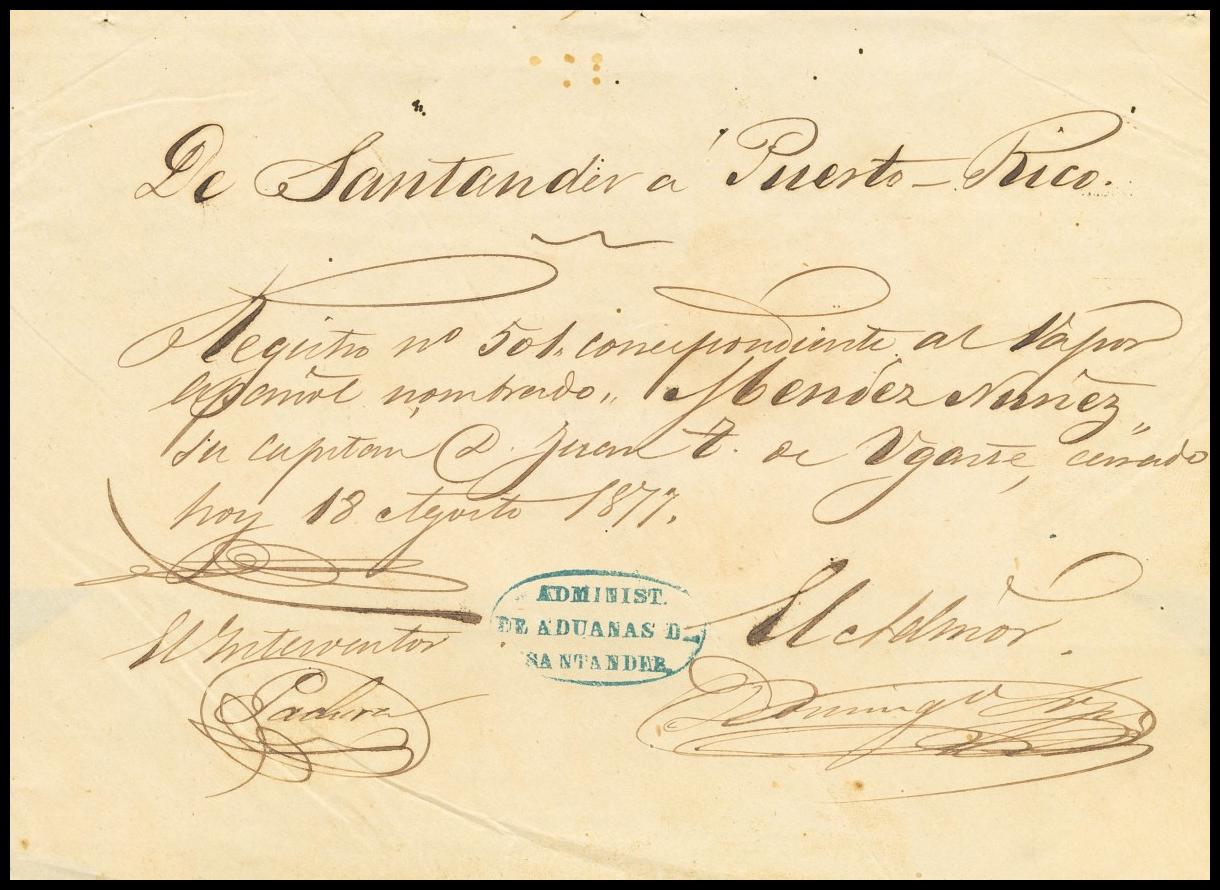 De Santander a Puerto-Rico.
Registro nº 501. correspondiente al Vapor
español nombrado „ Mendez Nuñez „
su capitan D. Juan T. de Ugarte, cerrado
hoy 18 Agosto 1877.
ADMINIST.
DE ADUANAS D.
SANTANDER
El Interventor
El Admor.
Domingo